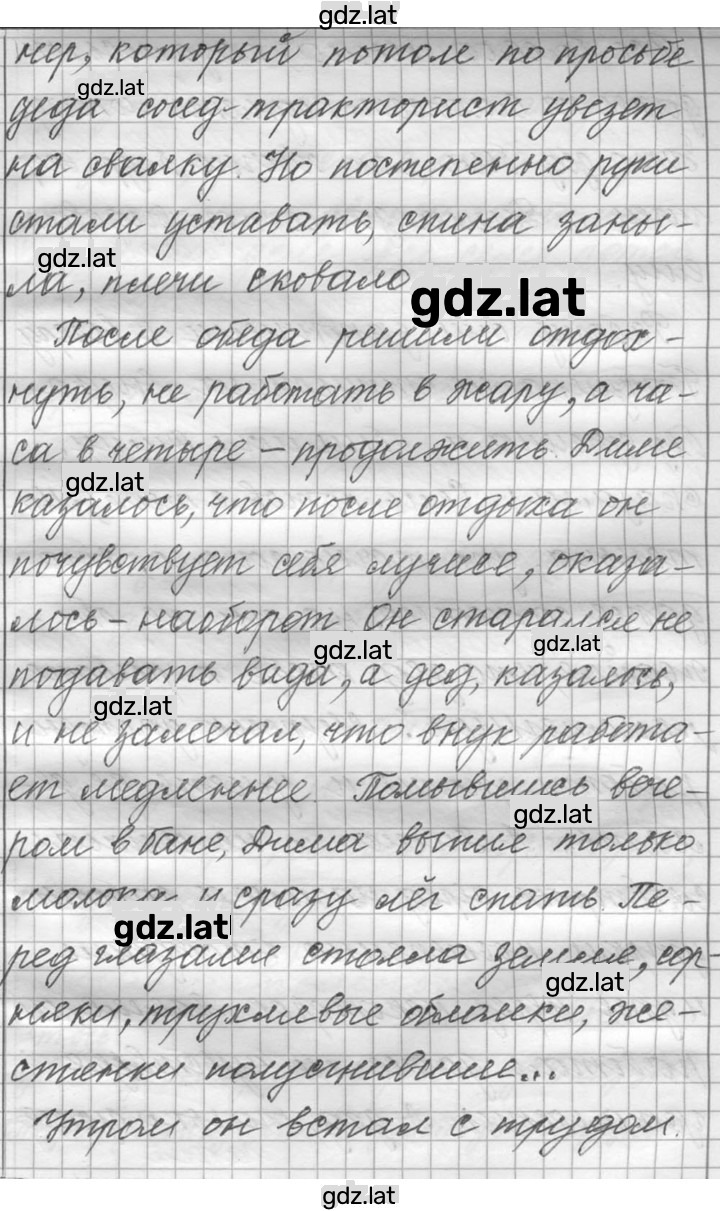 gdz.lat
нер, который потом по просьбе
gdz.lat
деда сосед-тракторист увезет
на свалку. Но постепенно руки
стали уставать, спина заны-
gdz.lat
ла, плечи сковало
gdz.lat
После обеда решили отдох-
нуть, не работать в жару, а ча-
са в четыре – продолжить. Диме
gdz.lat
казалось, что после отдыха он
почувствует себя лучше, оказа-
лось – наоборот. Он старался не
gdz.lat
gdz.lat
подавать вида, а дед, казалось,
gdz.lat
и не замечал, что внук работа-
ет медленнее. Помывшись вече-
gdz.lat
ром в бане, Дима выпил только
молока и сразу лёг спать. Пе-
gdz.lat
ред глазами стояла земля, сор-
gdz.lat
няки, трухлявые обломки, же-
стянки полусгнившие...
Утром он встал с трудом.
gdz.lat